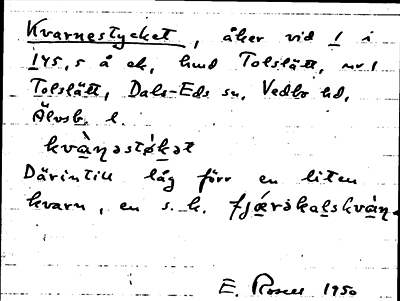 Kvarnestycket, åker vid 1 i
145,5 å ek, hmd Tolslätt, nr 1
Tolslätt, Dals-Eds sn, Vedbo hd,
Älvsb. l.
kvàṇəstøkət
Därintill låg förr en liten
kvarn, en s.k. fjǽrəkalskvàṇ.
E. Rosell 1950